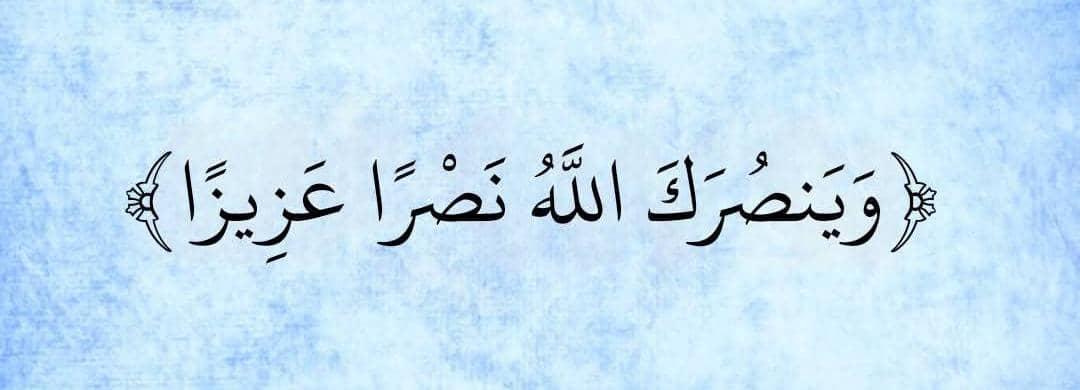 ﴿وَيَنصُرَكَ اللَّهُ نَصْرًا عَزِيزًا﴾